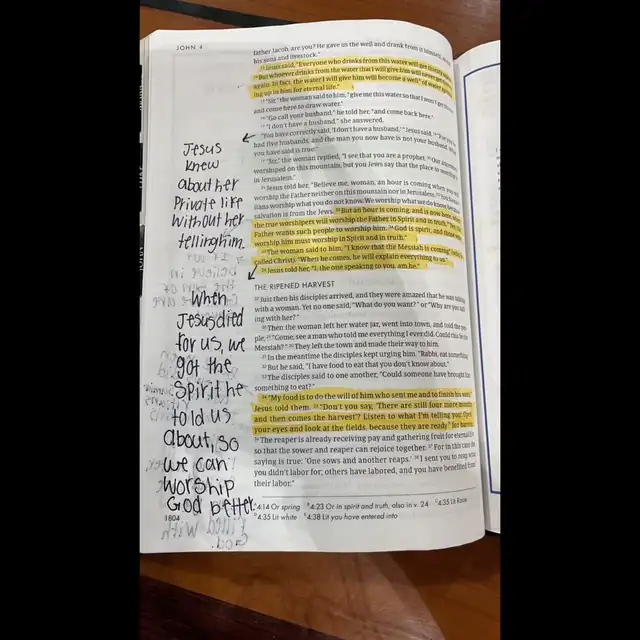 JOHN 4
Jesus
knew
about her
Private life
without her
telling him.
When
Jesus died
for us, we
got the
Spirit he
told us
about, so
we can
worship
God better.
1804
father Jacob, are you? He gave us the well and drank from it himself, as did
his sons and livestock."
13 Jesus said, "Everyone who drinks from this water will get thirsty again.
14 But whoever drinks from the water that I will give him will never get thirsty
again. In fact, the water I will give him will become a well of water springing
ing up in him for eternal life."
15 "Sir," the woman said to him, "give me this water so that I won't get thirsty
and come here to draw water."
16 "Go call your husband," he told her, "and come back here."
17 "I don't have a husband," she answered.
"You have correctly said, 'I don't have a husband,'" Jesus said. 18 "For you've
had five husbands, and the man you now have is not your husband. What
you have said is true."
19 "Sir," the woman replied, "I see that you are a prophet. 20 Our ancestors
worshiped on this mountain, but you Jews say that the place to worship is
in Jerusalem."
21 Jesus told her, "Believe me, woman, an hour is coming when you will
worship the Father neither on this mountain nor in Jerusalem. 22 You Samaritans
itans worship what you do not know. We worship what we do know, because
salvation is from the Jews. 23 But an hour is coming, and is now here, when
the true worshipers will worship the Father in Spirit and in truth. Yes, the
Father wants such people to worship him. 24 God is spirit, and those who
worship him must worship in Spirit and in truth."
25 The woman said to him, "I know that the Messiah is coming" (who is
called Christ). "When he comes, he will explain everything to us."
26 Jesus told her, "I, the one speaking to you, am he."
THE RIPENED HARVEST
27 Just then his disciples arrived, and they were amazed that he was talking
with a woman. Yet no one said, "What do you want?" or "Why are you talk-
ing with her?"
28 Then the woman left her water jar, went into town, and told the peo-
ple, 29 "Come, see a man who told me everything I ever did. Could this be the
Messiah?" 30 They left the town and made their way to him.
31 In the meantime the disciples kept urging him, "Rabbi, eat something."
32 But he said, "I have food to eat that you don't know about."
33 The disciples said to one another, "Could someone have brought him
something to eat?"
34 "My food is to do the will of him who sent me and to finish his work,"
Jesus told them. 35 "Don't you say, 'There are still four more months,
and then comes the harvest'? Listen to what I'm telling you: Open
your eyes and look at the fields, because they are ready for harvest.
36 The reaper is already receiving pay and gathering fruit for eternal life,
so that the sower and reaper can rejoice together. 37 For in this case the
saying is true: 'One sows and another reaps.' 38 I sent you to reap what
you didn't labor for; others have labored, and you have benefited from
their labor."
4:14 Or spring 4:23 Or in spirit and truth, also in v. 24 4:35 Lit Raise
4:35 Lit white 4:38 Lit you have entered into